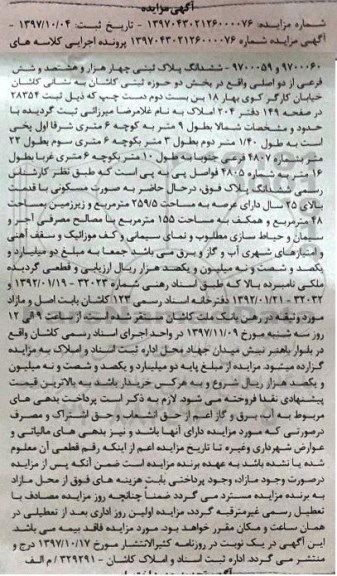 آگهی مزایده
شماره مزایده: ۱۳۹۷۰۴۳۰۲۱۲۶۰۰۰۰۷۶ - تاریخ ثبت: ۱۳۹۷/۱۰/۰۴
آگهی مزایده شماره ۱۳۹۷۰۴۳۰۲۱۲۶۰۰۰۰۷۶ پرونده اجرایی کلاسه های
۹۷۰۰۰۶۰ و ۹۷۰۰۰۵۹ - ششدانگ پلاک ثبتی چهار هزار و هشتصد و شش
فرعی از دو اصلی واقع در بخش دو حوزه ثبتی کاشان به نشانی کاشان
خیابان کارگر کوی بهار ۱۸ بن بست دوم دست چپ که ذیل ثبت ۲۸۳۵۴
در صفحه ۱۴۹ دفتر ۲۰۴ املاک به نام غلامرضا میرزائی ثبت گردیده با
حدود و مشخصات شمالا بطول ۹ متر به کوچه ۶ متری شرقا اول پخی
است به طول ۱/۴۰ متر دوم بطول ۳ متر بکوچه ۶ متری سوم بطول ۲۲
متر بشماره ۴۸۰۷ فرعی جنوبا به طول ۱۰ متر بکوچه ۶ متری غربا بطول
۱۶ متر به شماره ۴۸۰۵ فواصل پی به پی است که طبق نظر کارشناس
رسمی ششدانگ پلاک فوق، درحال حاضر به صورت مسکونی با قدمت
بالای ۲۵ سال دارای عرصه به مساحت ۲۵۹/۵ مترمربع و زیرزمین بمساحت
۲۸ مترمربع و همکف به مساحت ۱۵۵ مترمربع با مصالح مصرفی آجر و
سیمان و حیاط سازی مطلوب و نمای سیمانی و کف موزائیک و سقف آهنی
و امتیازهای شهری آب و گاز و برق می باشد جمعا به مبلغ دو میلیارد و
یکصد و شصت و نه میلیون و یکصد هزار ریال ارزیابی و قطعی گردیده
ملکی نامبرده بالا که طبق اسناد رهنی شماره ۳۲۰۲۳ - ۱۳۹۲/۰۱/۱۹ و
۳۲۰۳۲ - ۱۳۹۲/۰۱/۲۱ دفترخانه اسناد رسمی ۱۲۳ کاشان بابت اصل و مازاد
مورد وثیقه در رهن بانک ملت کاشان مستقر شده است از ساعت ۹ الی ۱۲
روز سه شنبه مورخ ۱۳۹۷/۱۱/۰۹ در واحد اجرای اسناد رسمی کاشان واقع
در بلوار باهنر نبش میدان جهاد محل اداره ثبت اسناد و املاک به مزایده
گزارده میشود. مزایده از مبلغ پایه دو میلیارد و یکصد و شصت و نه میلیون
و یکصد هزار ریال شروع و به هرکس خریدار باشد به بالاترین قیمت
پیشنهادی نقدا فروخته می شود. لازم به ذکر است پرداخت بدهی های
مربوط به آب، برق و گاز اعم از حق انشعاب و حق اشتراک و مصرف
درصورتی که مورد مزایده دارای آنها باشد و نیز بدهی های مالیاتی و
عوارض شهرداری وغیره تا تاریخ مزایده اعم از اینکه رقم قطعی آن معلوم
شده یا نشده باشد به عهده برنده مزایده است ضمن آنکه پس از مزایده
درصورت وجود مازاد، وجوه پرداختی بابت هزینه های فوق از محل مازاد
به برنده مزایده مسترد می گردد ضمناً چنانچه روز مزایده مصادف با
تعطیل رسمی غیرمترقبه گردد، مزایده اولین روز اداری بعد از تعطیلی در
همان ساعت و مکان مقرر خواهد بود. مورد مزایده فاقد بیمه می باشد.
این آگهی در یک نوبت در روزنامه کثیرالانتشار مورخ ۱۳۹۷/۱۰/۱۷ درج و
منتشر می گردد. اداره ثبت اسناد و املاک کاشان - ۳۲۹۲۹۱ / م الف